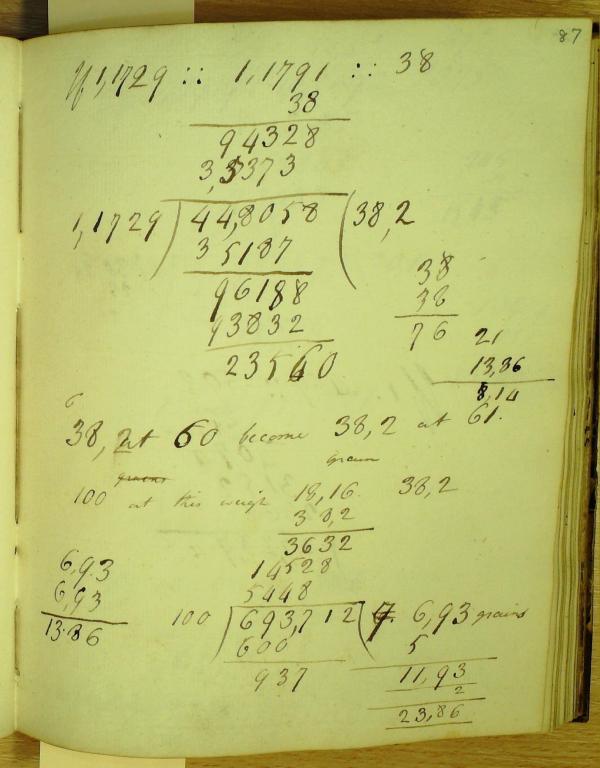 87
If 1,1729 :: 1,1791 :: 38
38
94328
3,5373
1,1729 ) 44,8058 ( 38,2
35187
96188
93832
23560
38
38
76
21
13,86
8,14
6
38, 2 at 60 become 38,2 at 61.
grains
grain
100 at this weigh 18,16. 38,2
38,2
3632
14528
5448
100 ) 693,712 ( 6,93 grains
600
937
5
11,93
2
23,86
6,93
6,93
13.86